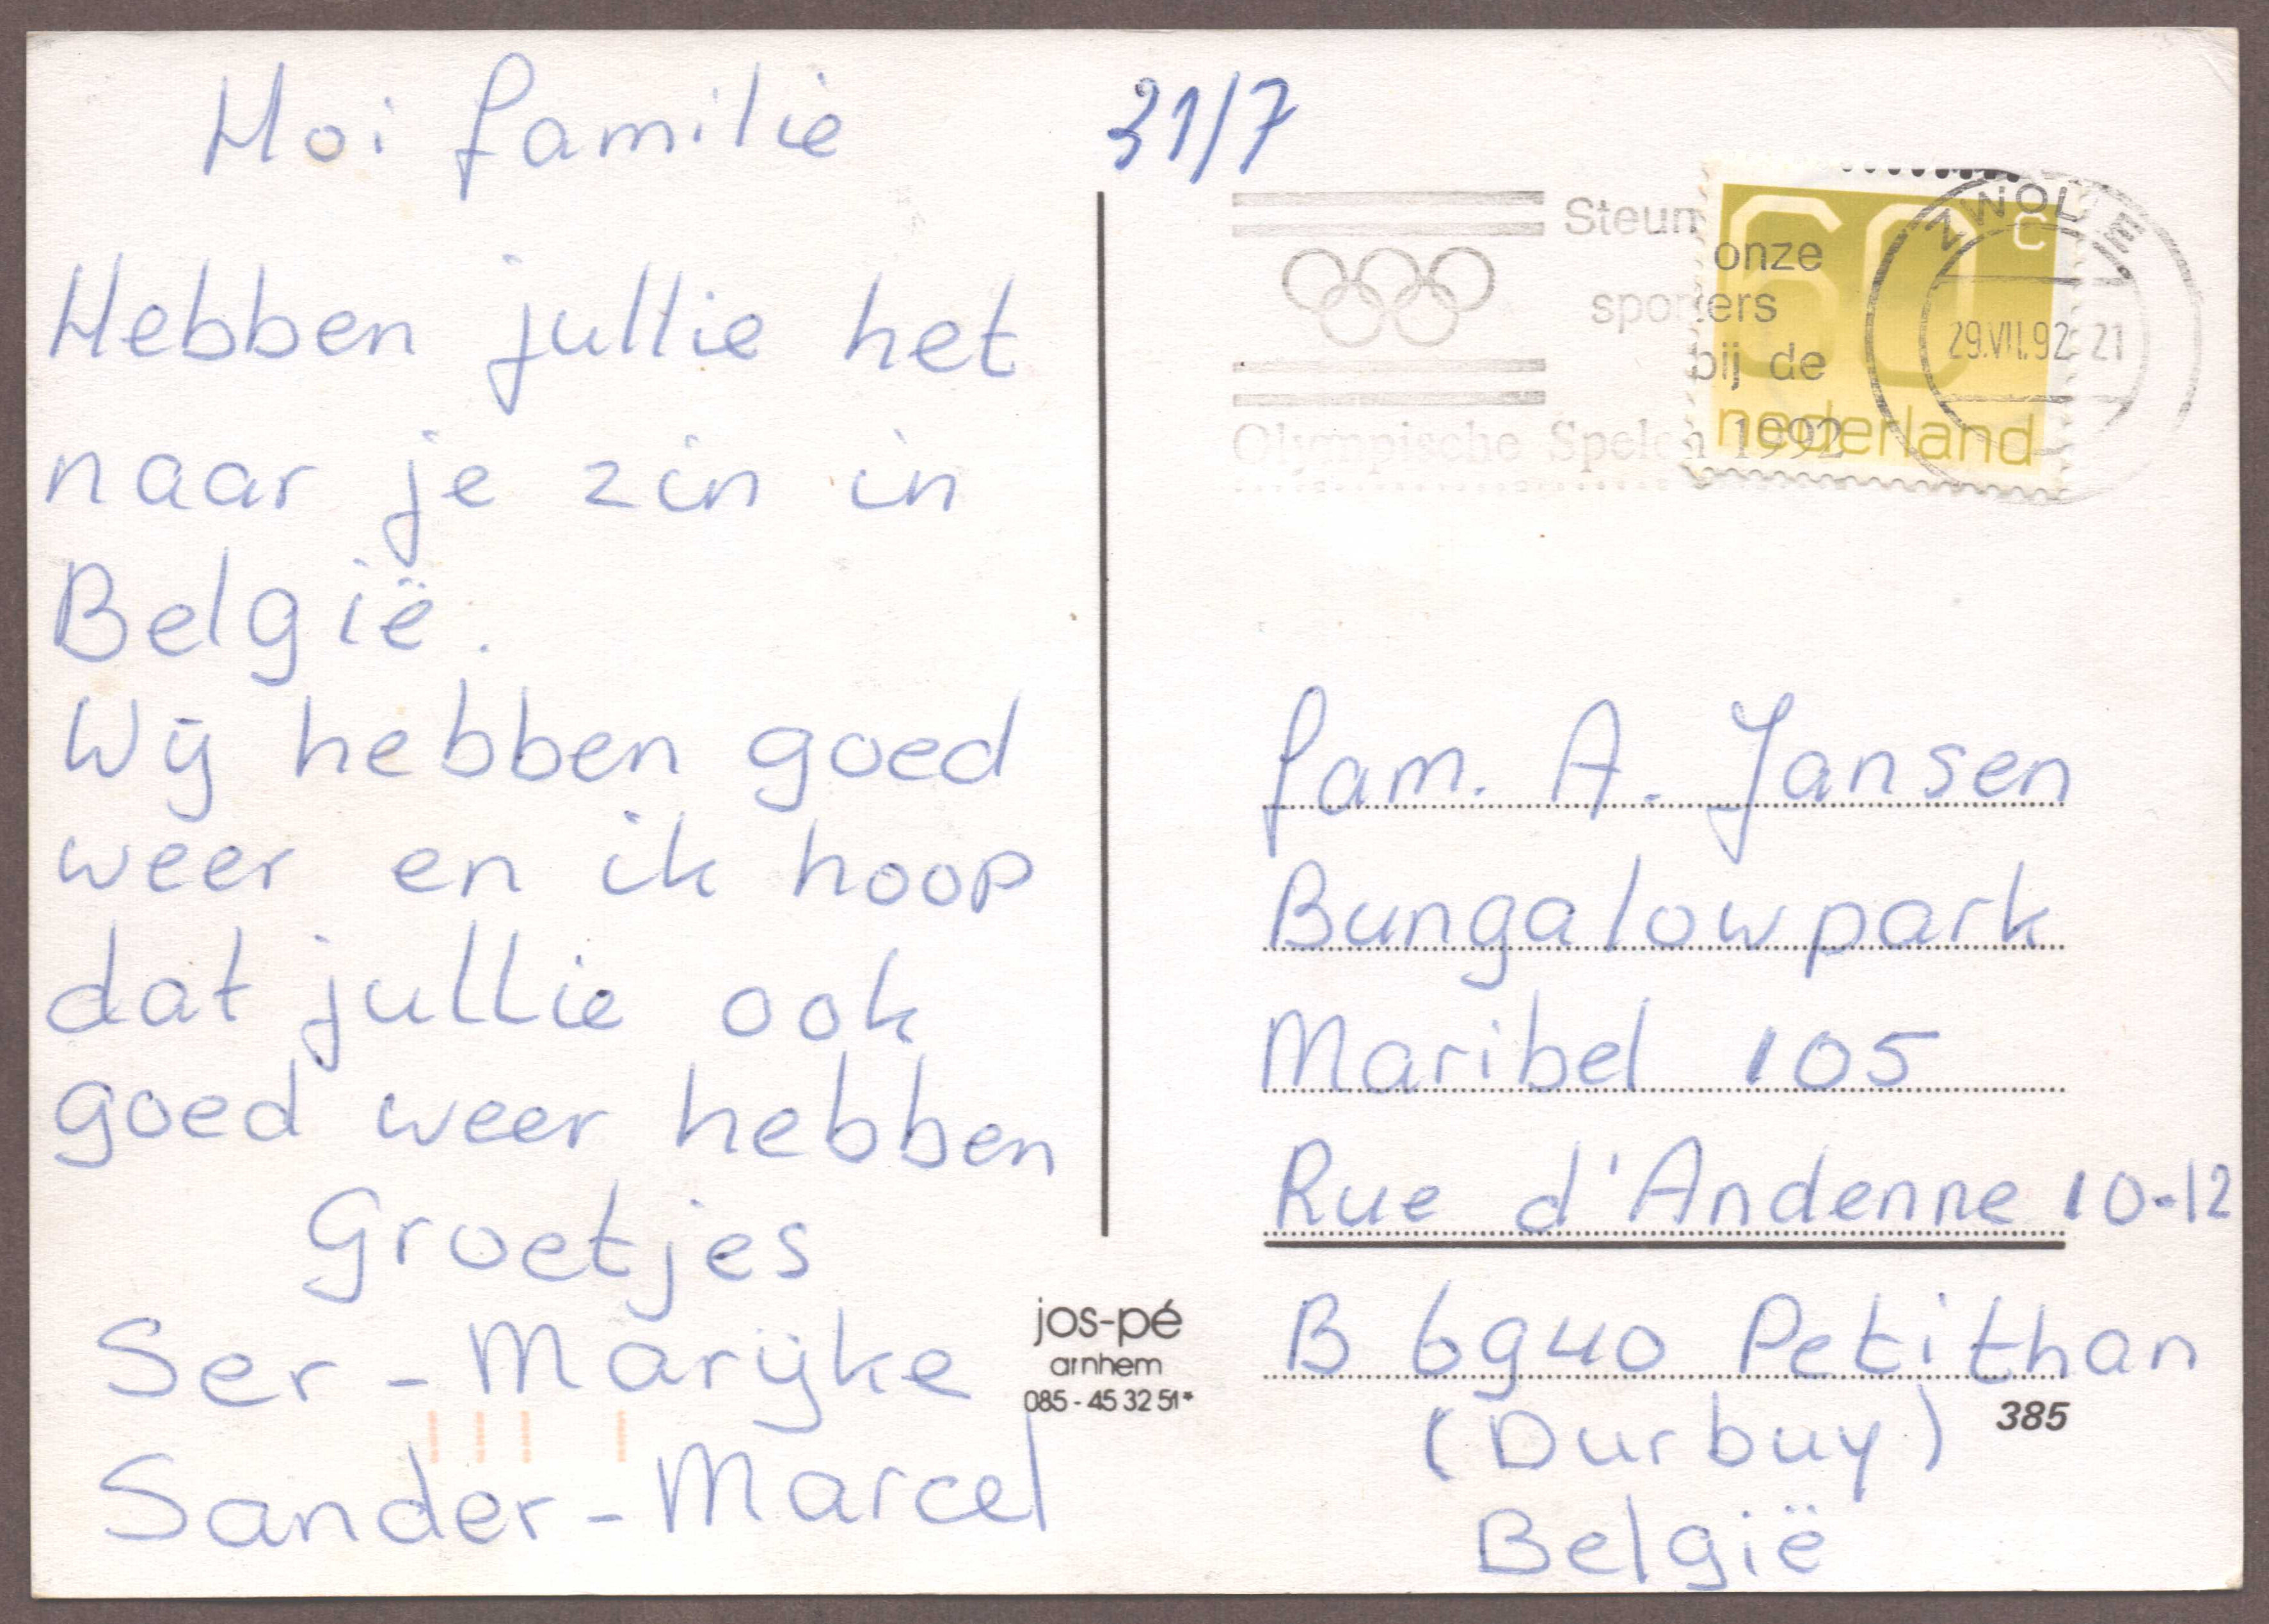 Hoi familie
Hebben jullie het
naar je zin in
België.
Wij hebben goed
weer en ik hoop
dat jullie ook
goed weer hebben
Groetjes
Ser - Marijke
Sander - Marcel
31/7
Steun
onze
sporters
bij de
Olympische Spelen 1992
60 c
nederland
ZWOLLE
29.VII.92 21
fam. A. Jansen
Bungalowpark
Maribel 105
Rue d'Andenne 10-12
B 6940 Petithan
(Durbuy)
België
jos-pé
arnhem
085-45 32 51*
385